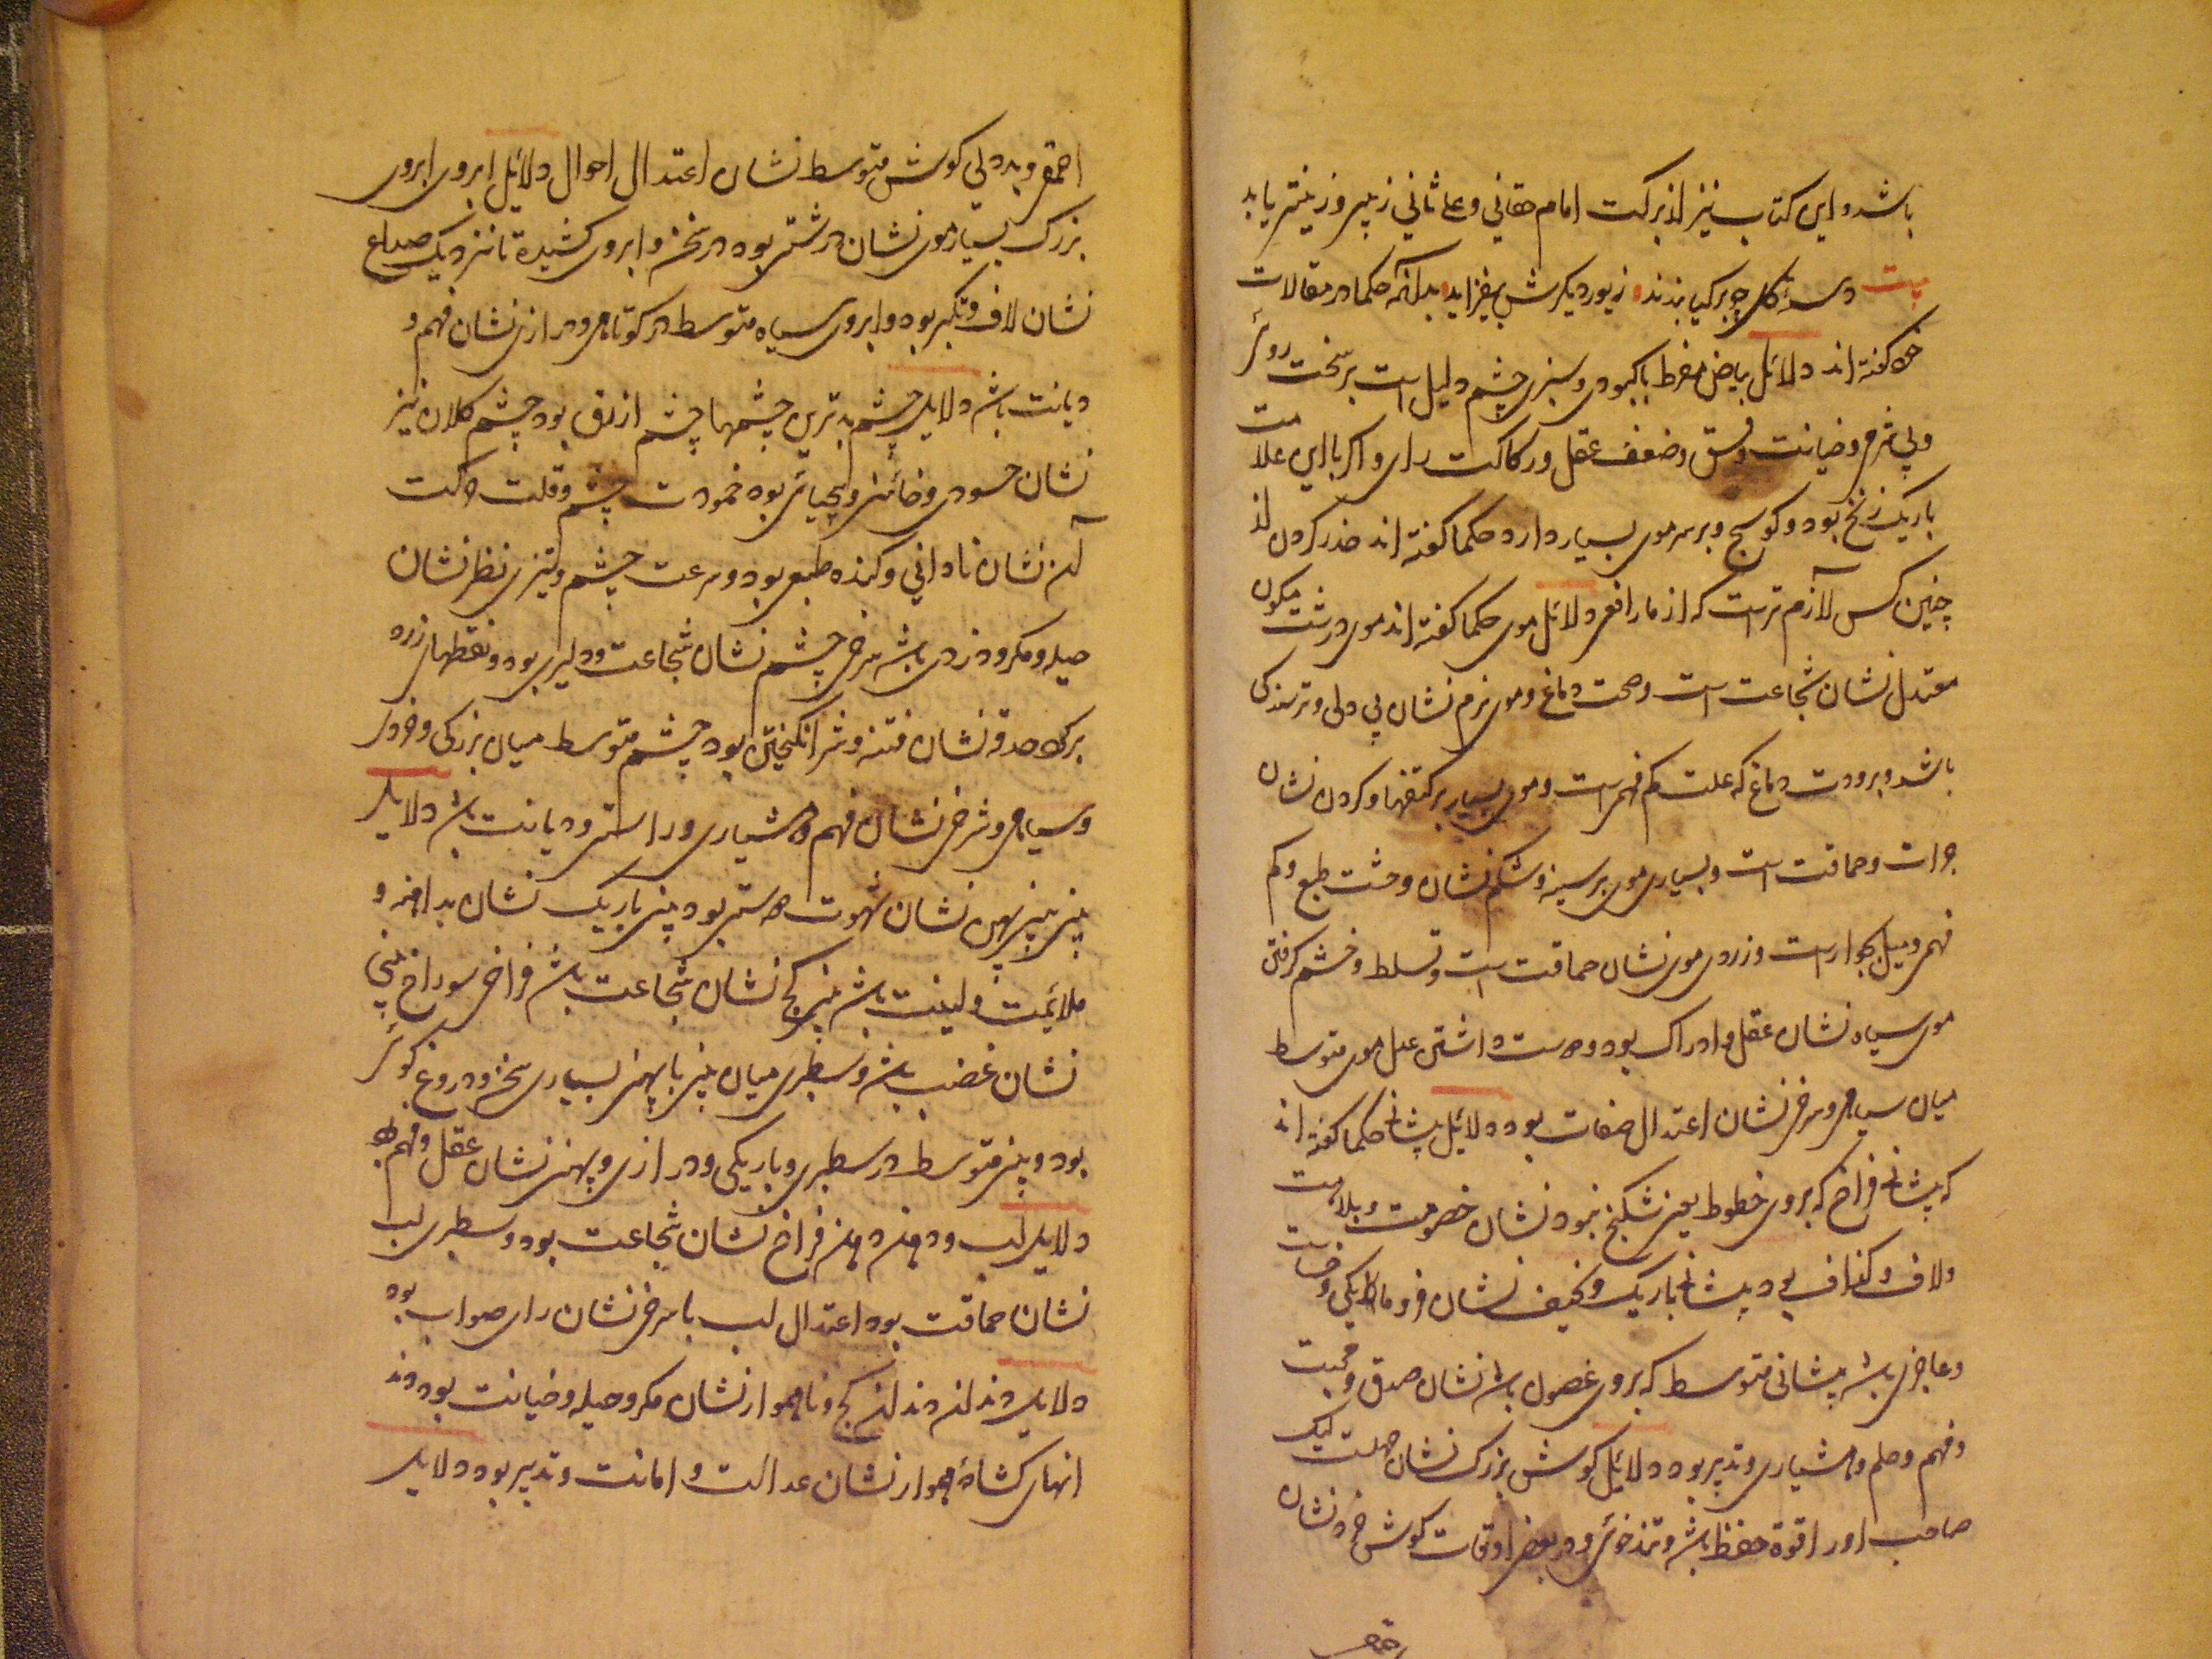 باشد و این کتاب نیز از برکت امام حقانی و علی ثانی زیبی و زینتی یابد
بیت دسته گل چو بر گیا بندند زیور دیگرش بیفزاید بدانکه حکما در مقالات
خود گفته اند دلائل بیاض مفرط با کبودی و سبزی چشم دلیل است بر سخت روئی
و بی شرمی و خیانت و فسق و ضعف عقل و رکاکت رای و اگر با این علامت
باریک زنخ بود و کوسج و بر سر موی بسیار دارد حکما گفته اند حذر کردن از
چنین کس لازم تر است که از مار افعی دلائل موی حکما گفته اند موی درشت میگون
معتدل نشان شجاعت است و صحت دماغ و موی نرم نشان بی دلی و ترسندگی
باشد و برودت دماغ که علت کم فهمی است و موی بسیار بر کتفها و گردن نشان
جرات و حماقت است و بسیاری موی بر سینه و شکم نشان وحشت طبع و کم
فهمی و میل بجور است و زردی موی نشان حماقت است و تسلط و خشم گرفتن
موی سیاه نشان عقل و ادراک بود و دوست داشتن عدل موی متوسط
میان سیاهی و سرخی نشان اعتدال صفات بود دلائل پیشانی حکما گفته اند
که پیشانی فراخ که بروی خطوط یعنی شکنج نبود نشان خصومت و بلاهت
و لاف و گزاف بود پیشانی باریک و نحیف نشان فرومایگی و خساست
و عاجزی باشد پیشانی متوسط که بروی غصون باشد نشان صدق و محبت
و فهم و حلم و هشیاری و تدبیر بود دلائل گوش بزرگ نشان جهلست لیک
صاحب او را قوة حفظ باشد و تندخوئی و در بعض اوقات گوش خورد نشان
احمقی
احمقی و بددلی گوش متوسط نشان اعتدال احوال دلائل ابروی ابروی
بزرگ بسیار موی نشان درشتی بود در سخن و ابروی کشیده تا نزدیک صداع
نشان لاف و تکبر بود و ابروی سیاه متوسط در کوتاهی و درازی نشان فهم و
دیانت باشد دلایل چشم بدترین چشمها چشم ازرق بود چشم کلان نیز
نشان حسودی و خائنی و بیحیائی بود خمودت چشم و قلت حرکت
آن نشان نادانی و کنده طبعی بود و سرعت چشم و تیزی نظر نشان
حیله و مکر و دزدی باشد سرخی چشم نشان شجاعت و دلیری بود و نقطهای زرد
برگرد حدقه نشان فتنه و شر انگیختن بود چشم متوسط میان بزرگی و خوردی
و سیاهی و سرخی نشان فهم و هشیاری و راستی و دیانت باشد دلایل
بینی بینی پهن نشان شهوت دوستی بود بینی باریک نشان و
ملائمت و لینت باشد بینی کج نشان شجاعت باشد فراخی سوراخ بینی
نشان غضب باشد و سطبری میان بینی با پهنی بسیاری سخن و دروغ گوئی
بود و بینی متوسط در سطبری و باریکی و درازی و پهنی نشان عقل و فهم بود
دلایل لب و دهن دهن فراخ نشان شجاعت بود و سطبری لب
نشان حماقت بود اعتدال لب با سرخی نشان رای صواب بود
دلایل دندان دندان کج و ناهموار نشان مکر و حیله و خیانت بود دند
انهای گشاده هموار نشان عدالت و امانت و تدبیر بود دلایل